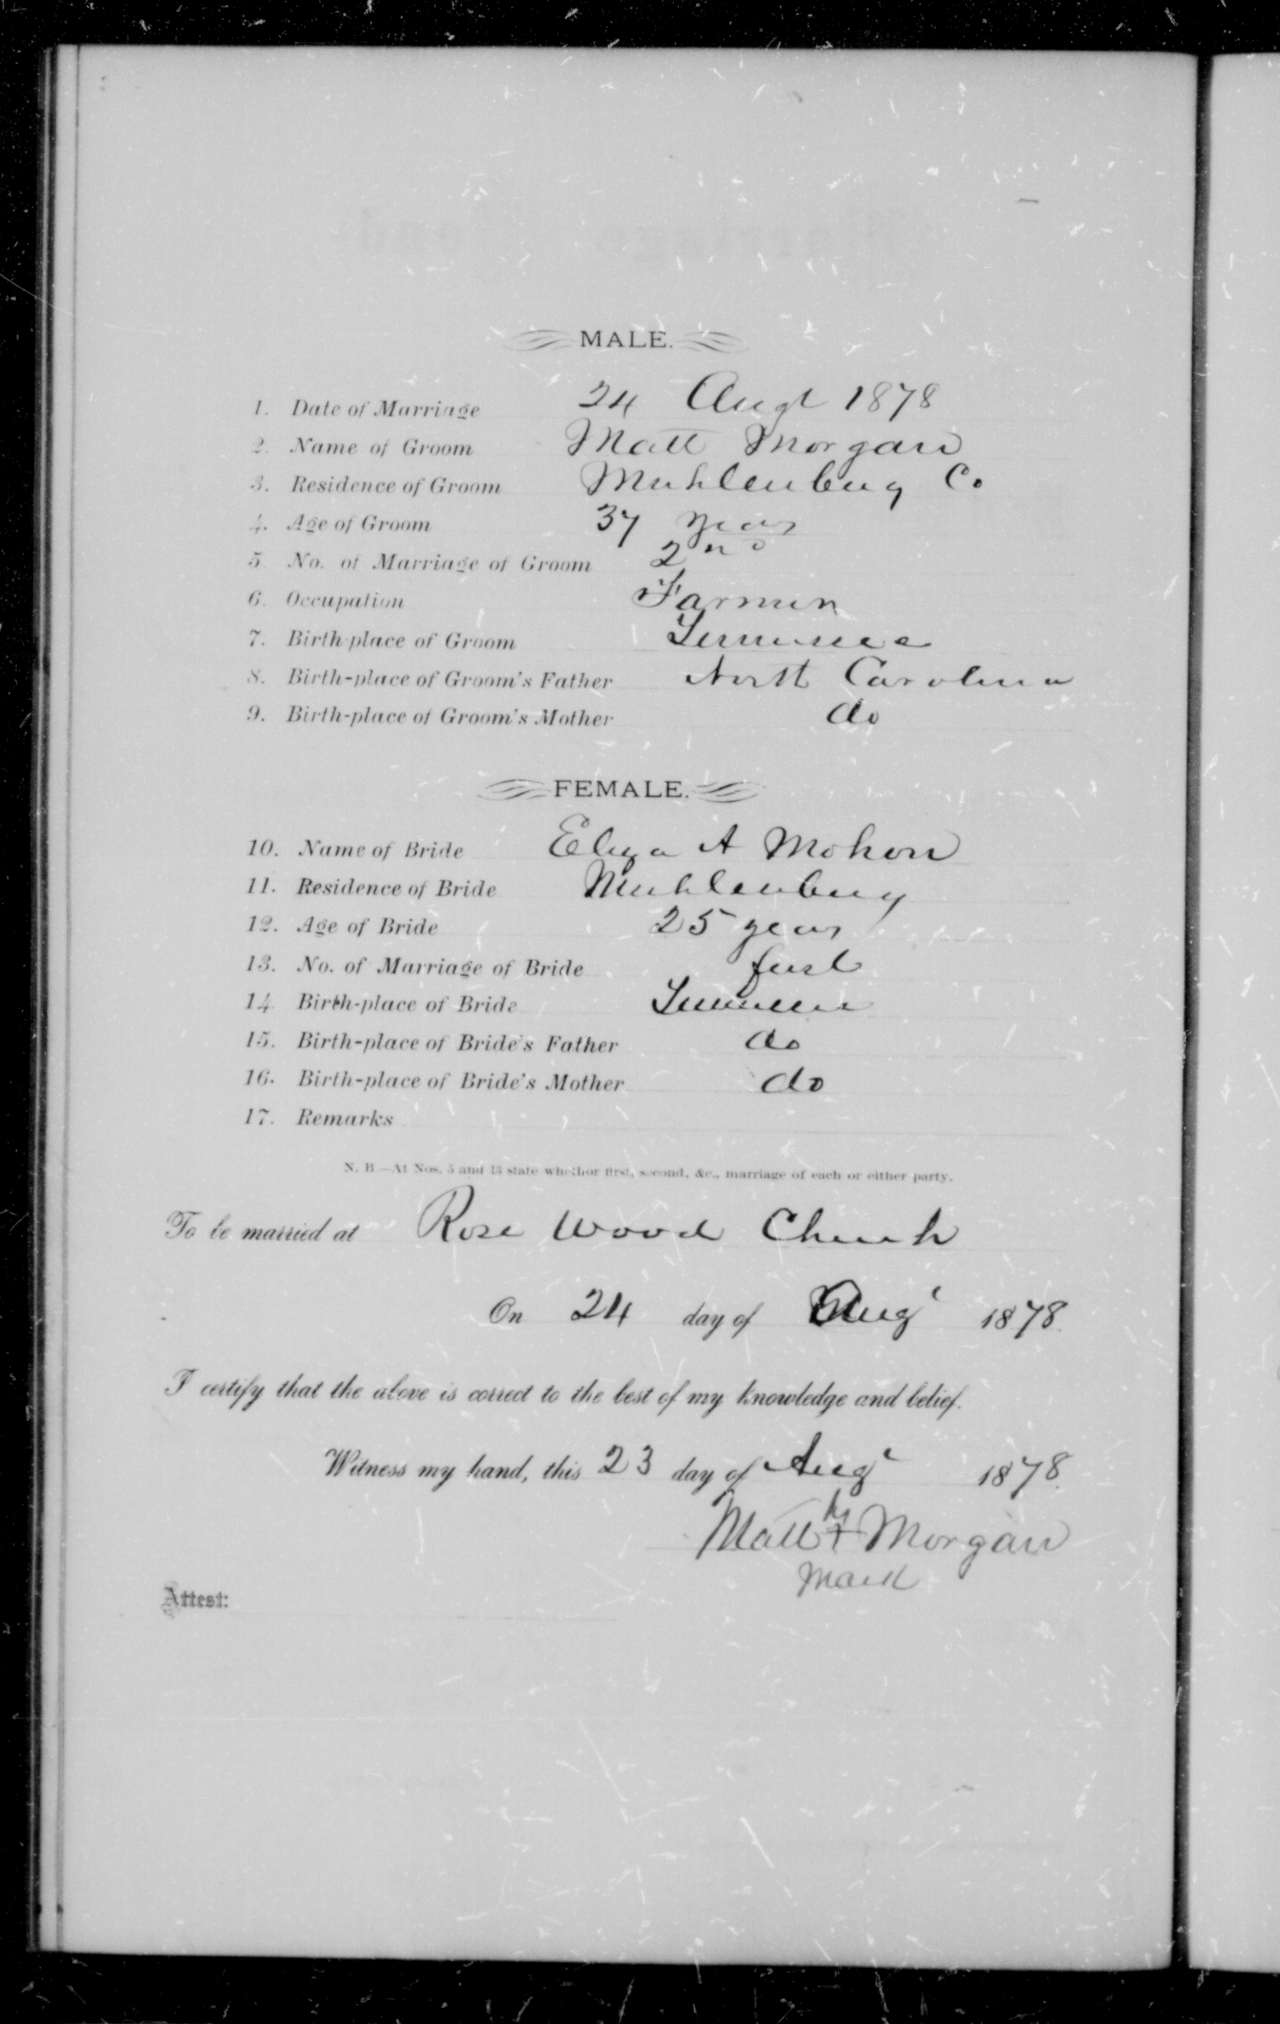 MALE.
1. Date of Marriage 24 Augt 1878
2. Name of Groom Matt Morgan
3. Residence of Groom Muhlenburg Co
4. Age of Groom 37 years
5. No. of Marriage of Groom 2nd
6. Occupation Farmer
7. Birth-place of Groom Tennessee
8. Birth-place of Groom's Father North Carolina
9. Birth-place of Groom's Mother do
FEMALE.
10. Name of Bride Eliza A Mohon
11. Residence of Bride Muhlenburg
12. Age of Bride 25 years
13. No. of Marriage of Bride first
14. Birth-place of Bride Tennessee
15. Birth-place of Bride's Father do
16. Birth-place of Bride's Mother do
17. Remarks
N. B—At Nos. 5 and 13 state whether first, second, &c., marriage of each or either party.
To be married at Rose Wood Church
On 24 day of Augt 1878
I certify that the above is correct to the best of my knowledge and belief.
Witness my hand, this 23 day of Augt 1878
his
Matt + Morgan
mark
Attest: